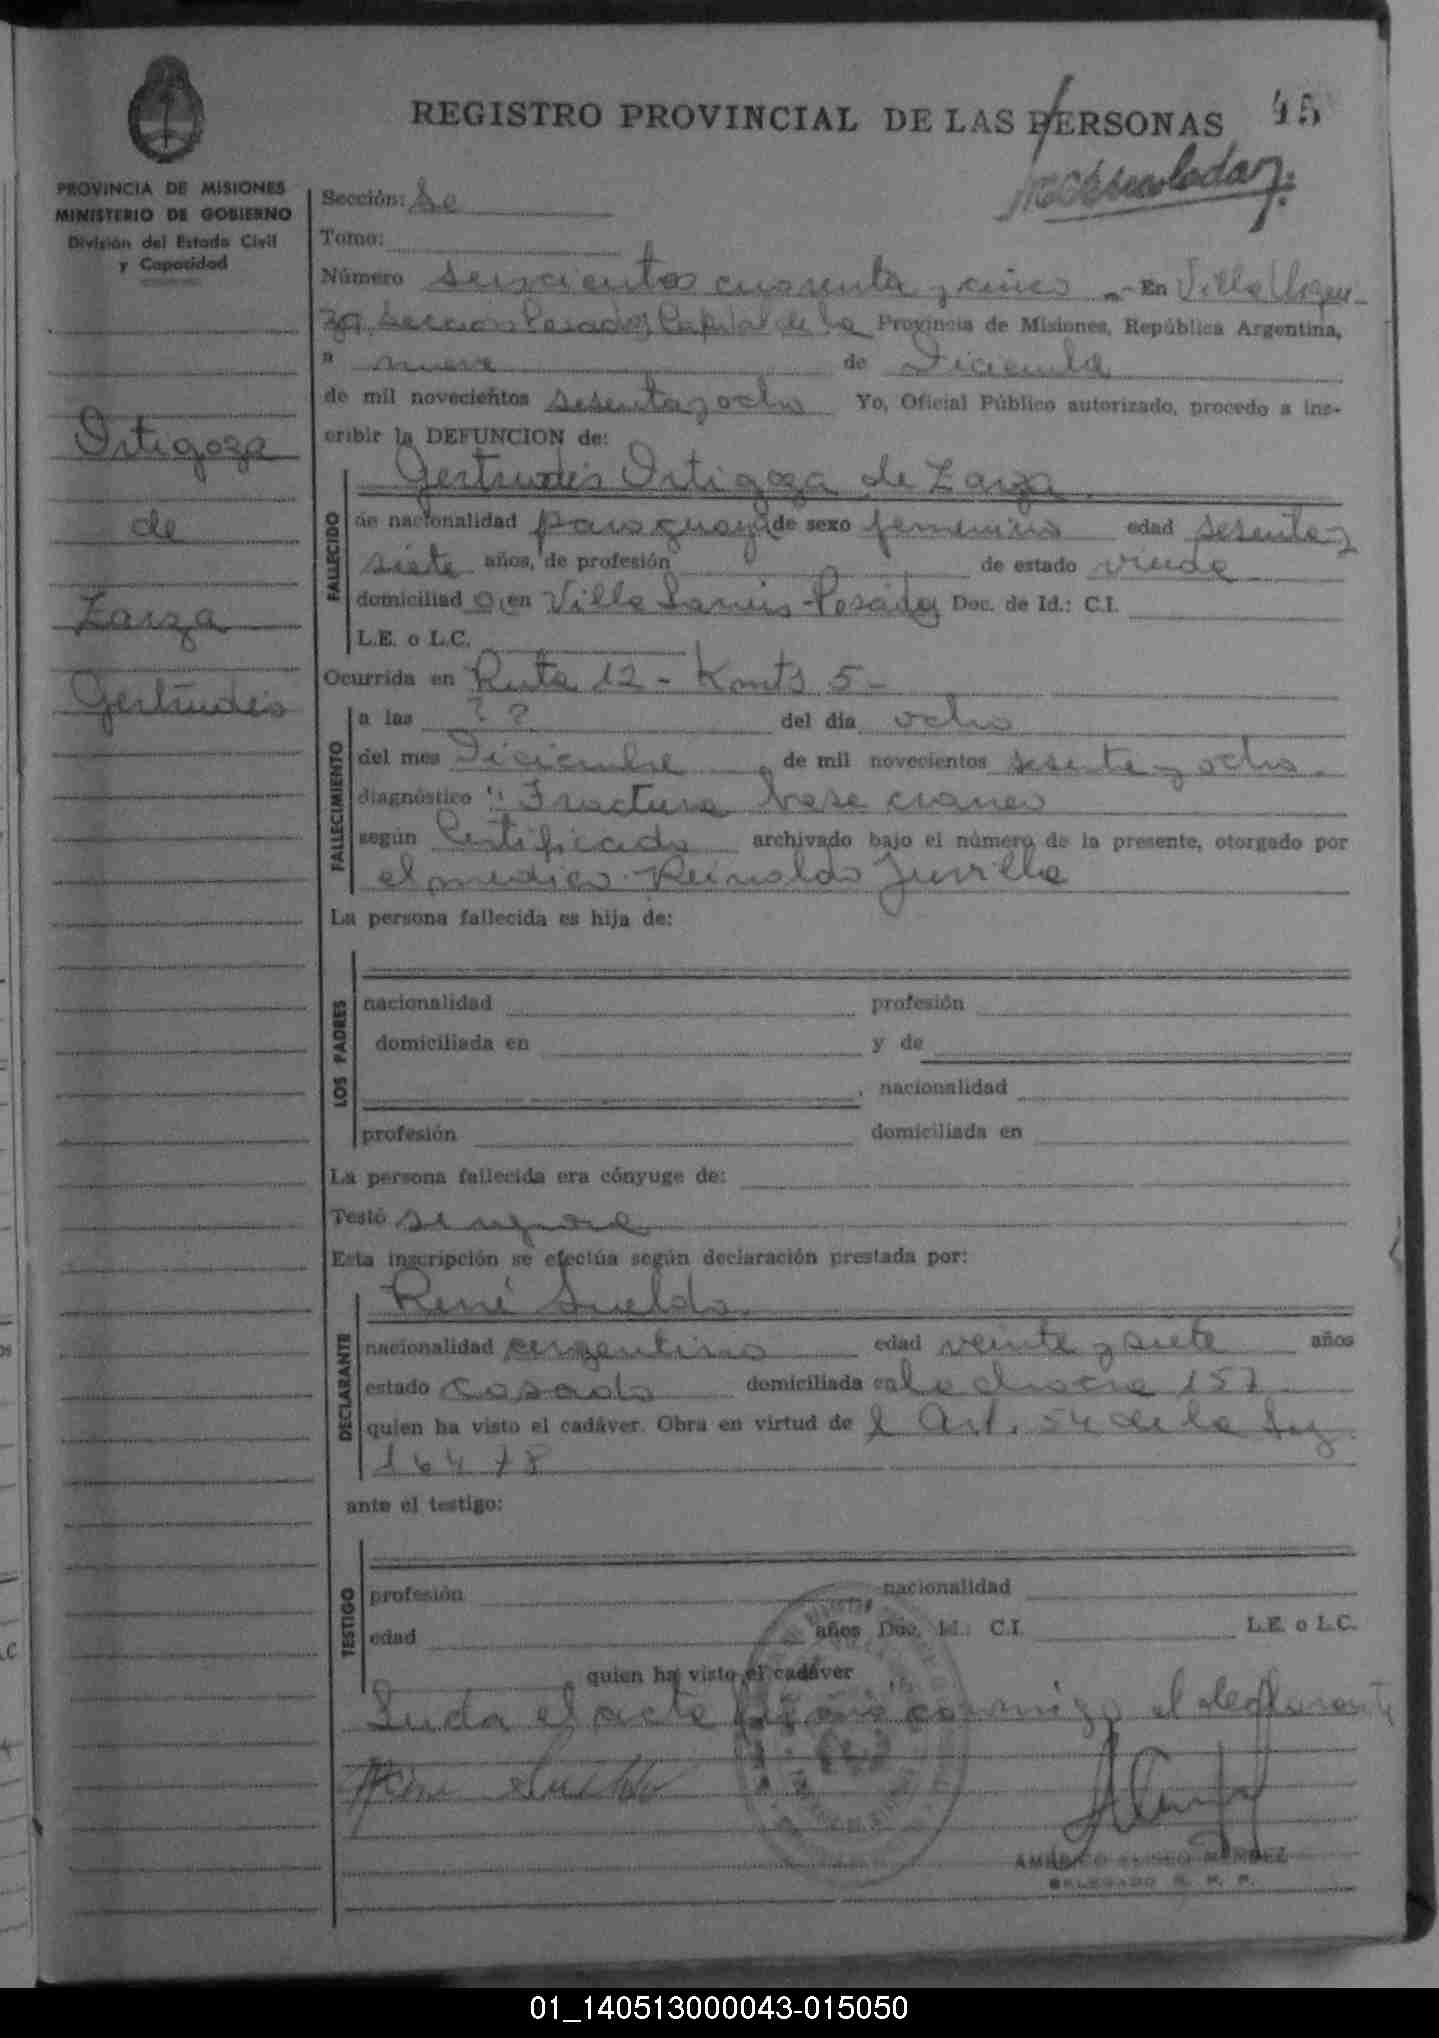 REGISTRO PROVINCIAL DE LAS PERSONAS 45
PROVINCIA DE MISIONES
MINISTERIO DE GOBIERNO
División del Estado Civil
y Capacidad
Ortigoza
de
Zarza
Gertrudis
Sección: Se
Tomo:
Número seiscientos cuarenta y cinco - En Villa Urqui-
za, Sección Posadas Capital de la Provincia de Misiones, República Argentina,
a nueve de Diciembre
de mil novecientos sesenta y ocho Yo, Oficial Público autorizado, procedo a ins-
cribir la DEFUNCION de:
Gertrudis Ortigoza de Zarza
FALLECIDO
de nacionalidad paraguaya de sexo femenino edad sesenta y
siete años, de profesión de estado viuda
domiciliad o en Villa Lanús-Posadas Doc. de Id.: C.I.
L.E. o L.C.
Ocurrida en Ruta 12 - Kmts 5 -
FALLECIMIENTO
a las ? ? del día ocho
del mes Diciembre de mil novecientos sesenta y ocho
diagnóstico "Fractura base craneo
según Certificado archivado bajo el número de la presente, otorgado por
el medico Reinaldo
La persona fallecida es hija de:
LOS PADRES
nacionalidad profesión
domiciliada en y de
, nacionalidad
profesión domiciliada en
La persona fallecida era cónyuge de:
Testó se ignora
Esta inscripción se efectúa según declaración prestada por:
René Sueldo
DECLARANTE
nacionalidad argentino edad veinte y siete años
estado casado domiciliada 157
quien ha visto el cadáver. Obra en virtud de l Art. 54 de la Ley
16478
ante el testigo:
TESTIGO
profesión nacionalidad
edad años Doc. Id.: C.I. L.E. o L.C.
, quien ha visto el cadáver
el acte conmigo el declarante
MENDEZ
DELEGADO R. P. P.
01_140513000043-015050